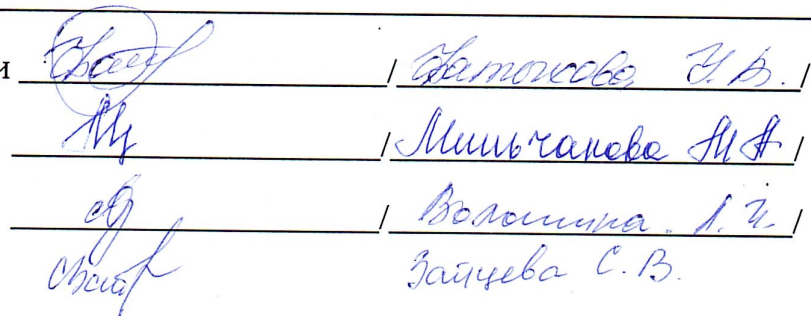 и / Ватокова У. В. /
/ Мильчакова М А /
/ Волошина Л. И. /
Зайцева С. В.